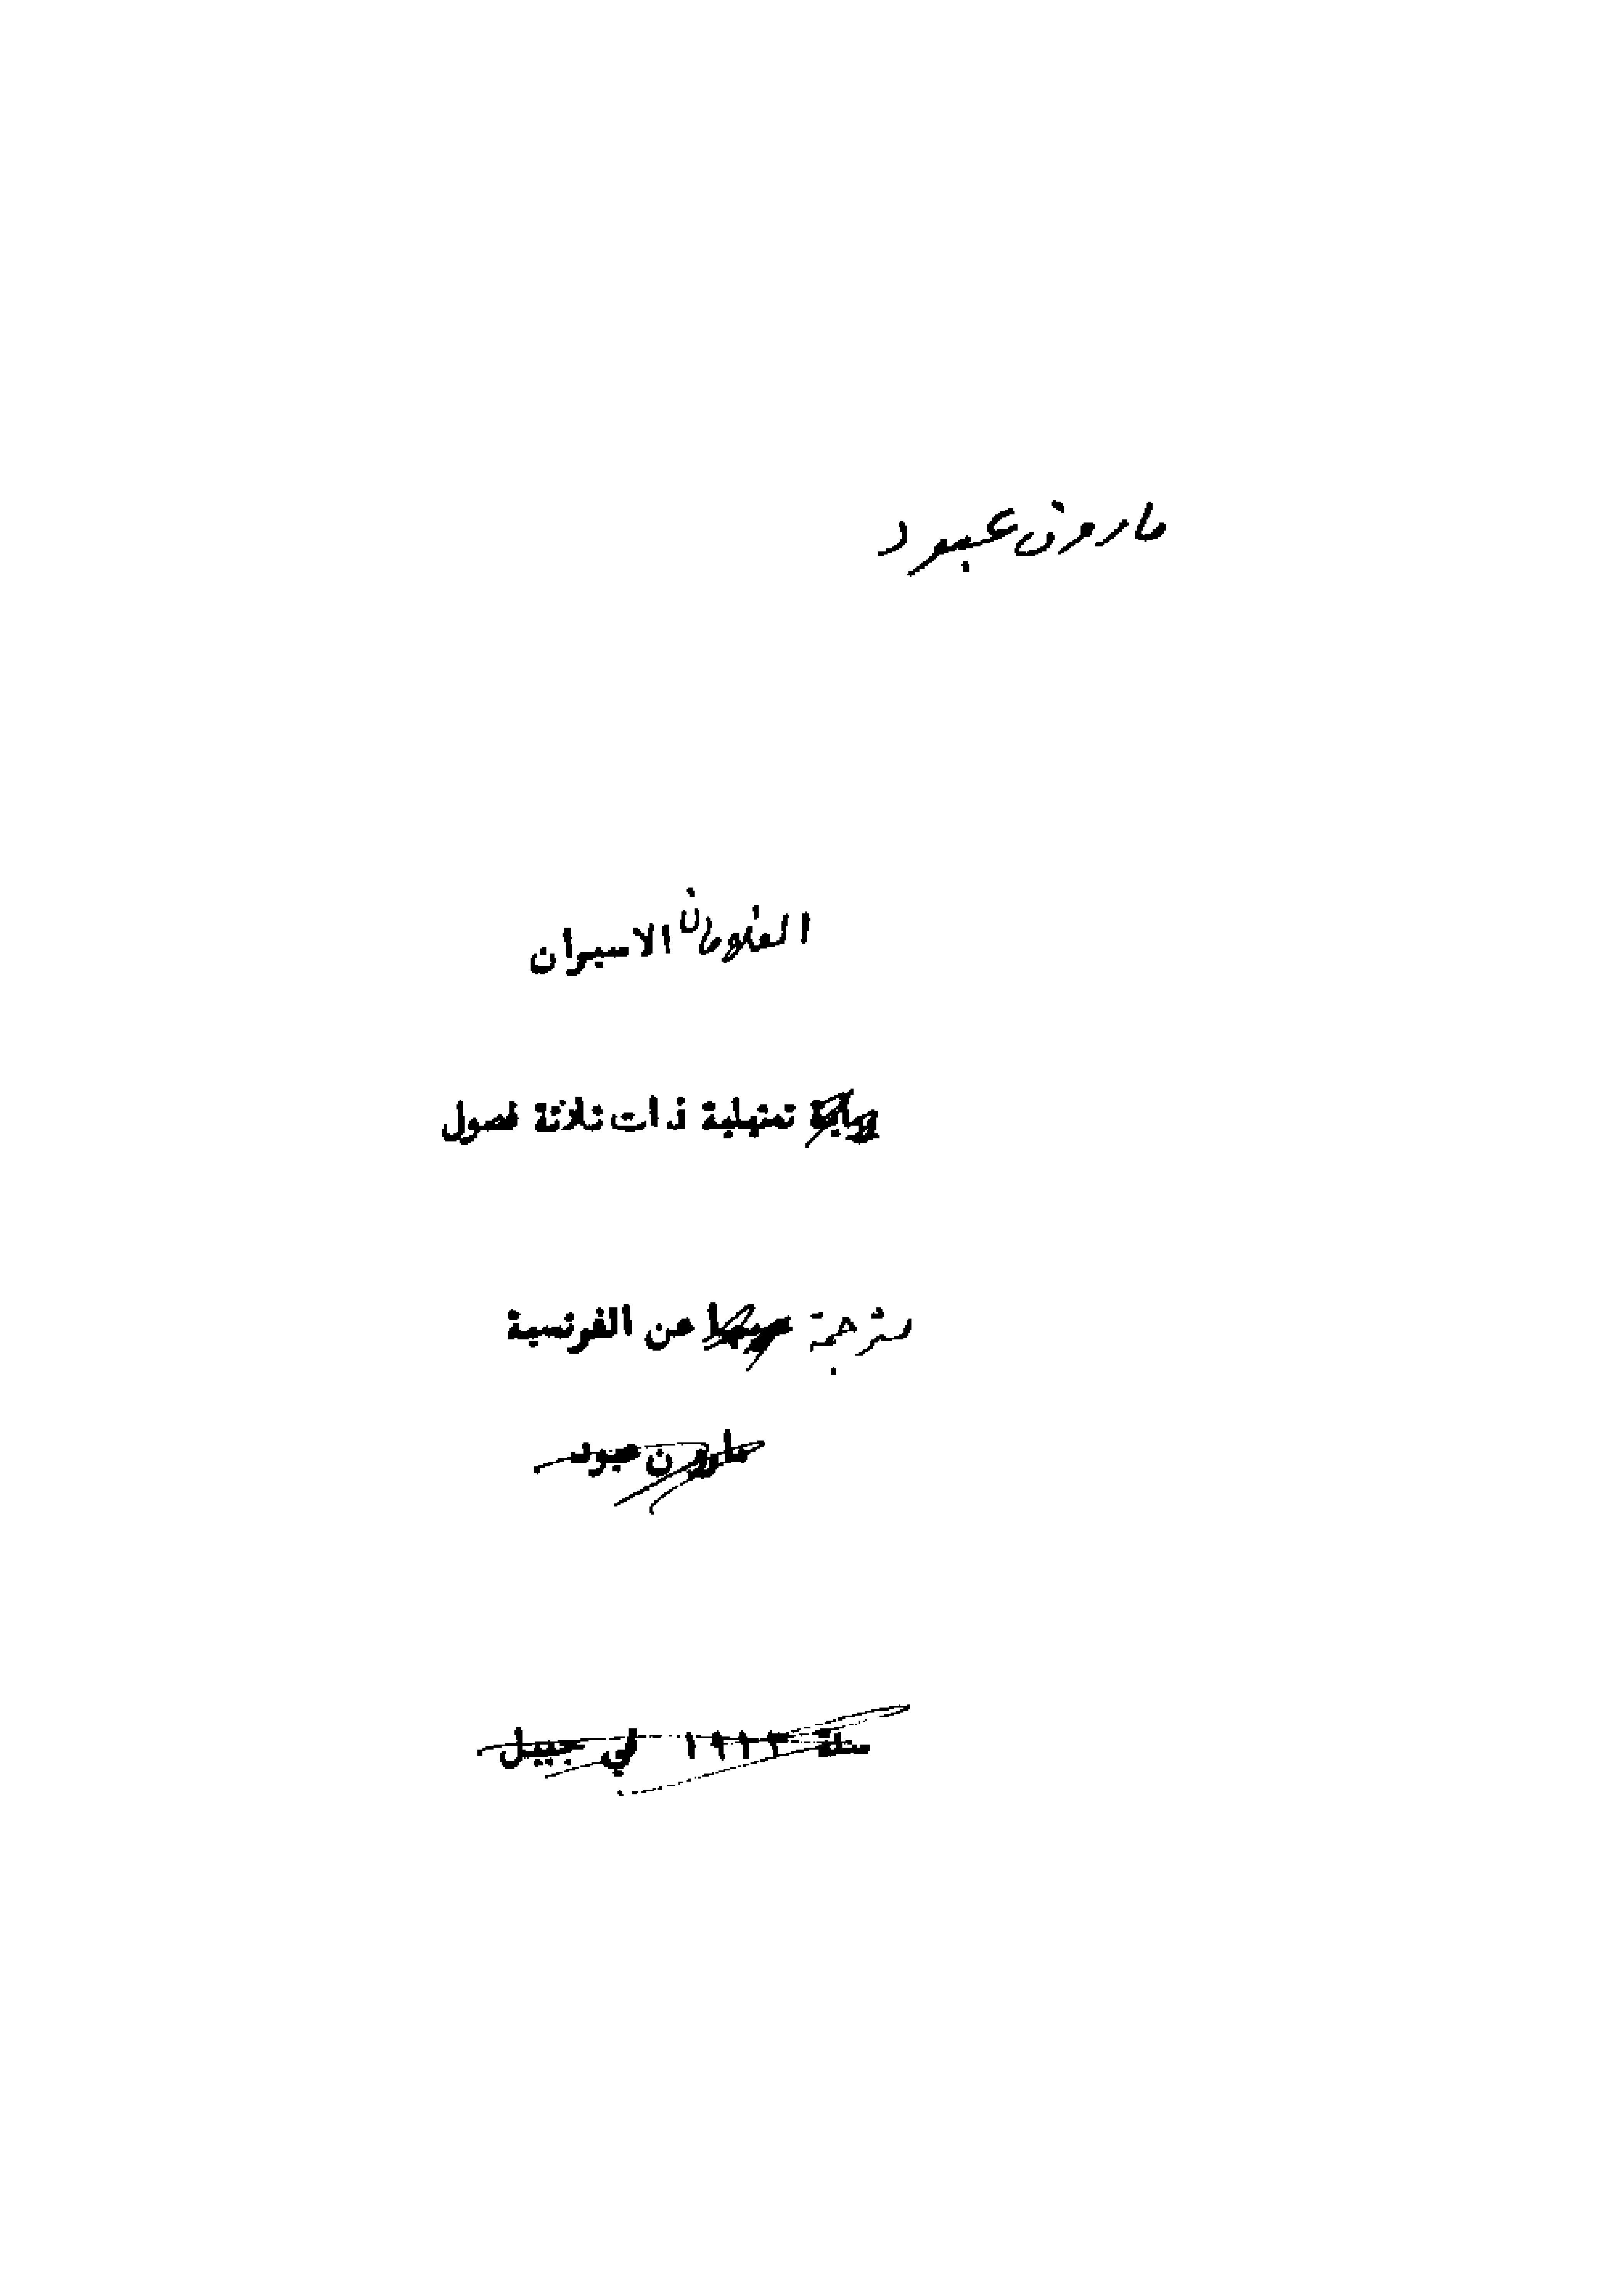 مارون عبود
الغلامان الاسيران
رواية تمثيلية ذات ثلاثة فصول
مترجمة عربها عن الفرنسية
مارون عبود
سنة ١٩١٣ في جبيل